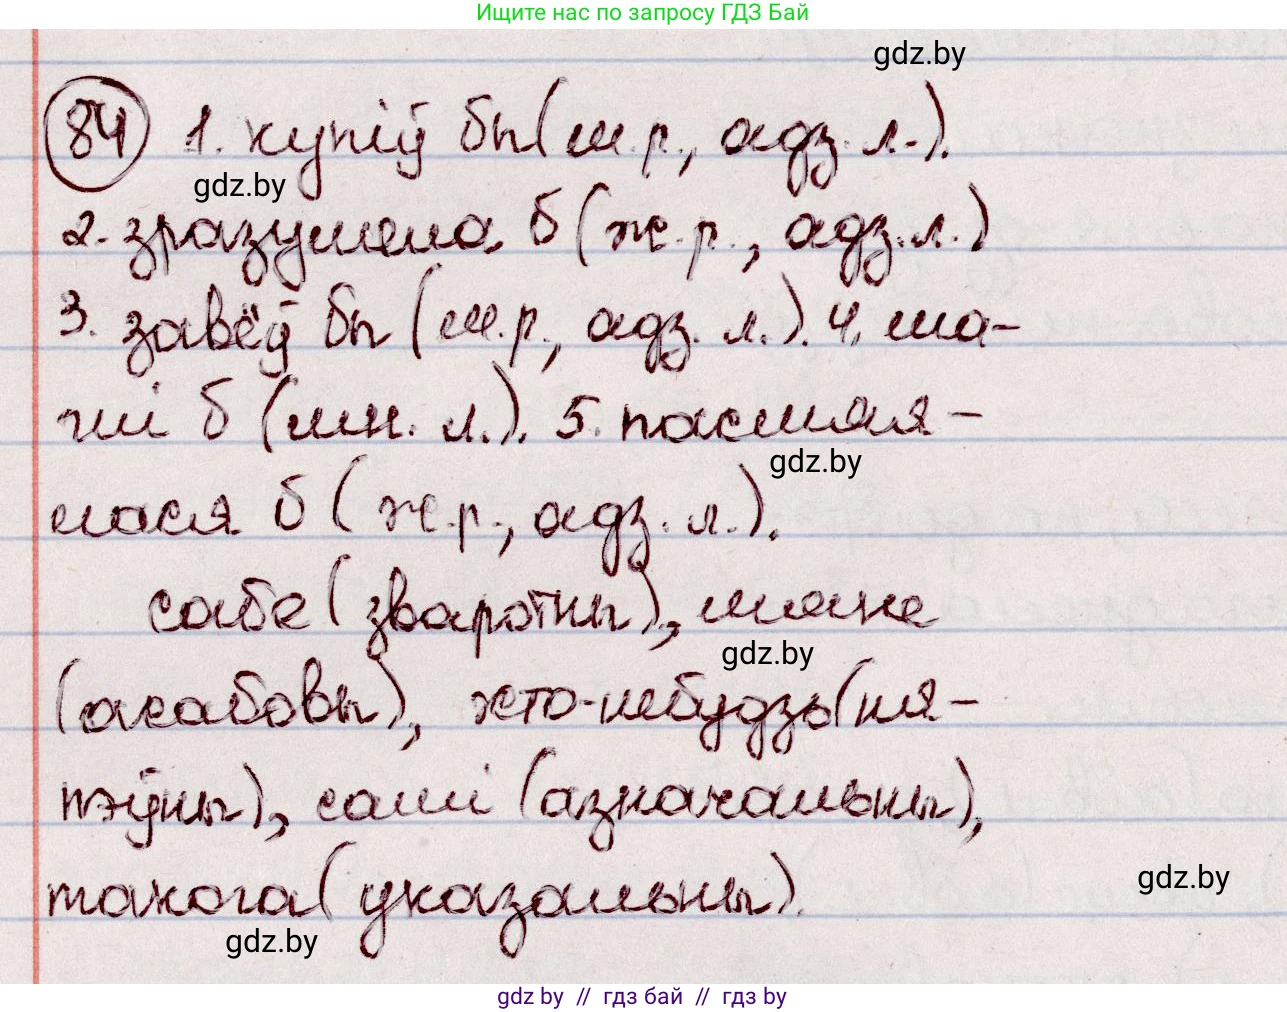 Ищите нас по запросу ГДЗ Бай
gdz.by
84 1. купіў бы (м.р., адз. л.).
gdz.by
2. зразумела б (ж.р., адз. л.)
3. завёў бы (м.р., адз. л.). 4. ма-
глі б (мн. л.). 5. пасмяя-
gdz.by
лася б (ж.р., адз. л.).
сабе (зваротны), мяне
gdz.by
(асабовы), хто-небудзь (ня-
пэўны), самі (азначальны),
такога (указальны).
gdz.by
gdz.by
gdz by // гдз бай // гдз by